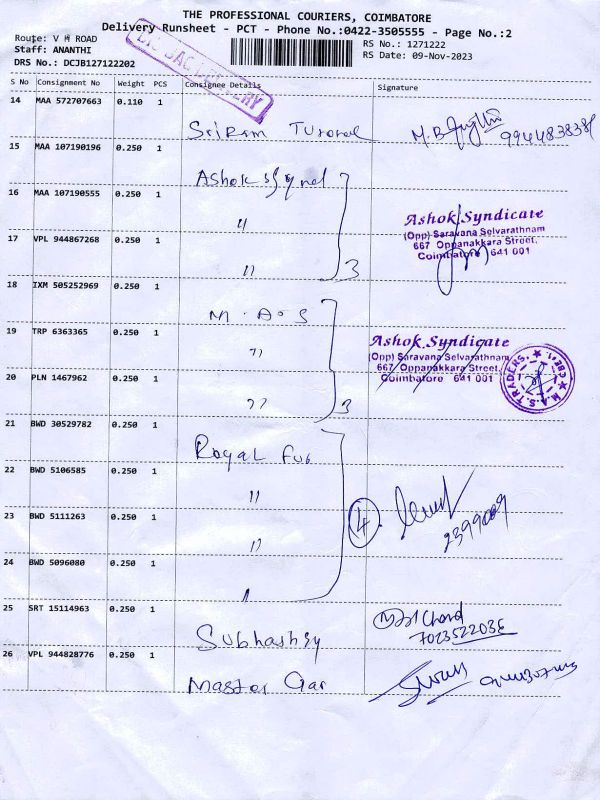 THE PROFESSIONAL COURIERS, COIMBATORE
Delivery Runsheet - PCT - Phone No.:0422-3505555 - Page No.:2
Route: V H ROAD
Staff: ANANTHI
DRS No.: DCJB127122202
RS No.: 1271222
RS Date: 09-Nov-2023
S No Consignment No Weight PCS Consignee Details Signature
14 MAA 572707663 0.110 1
Sriram
15 MAA 107190196 0.250 1
Ashok
16 MAA 107190555 0.250 1
"
Ashok Syndicate
(Opp) Saravana Selvarathnam
667 Oppanakkara Street,
Coimbatore 641 001
17 VPL 944867268 0.250 1
" 3
18 IXM 505252969 0.250 1
M.A.S
19 TRP 6363365 0.250 1
"
Ashok Syndicate
(Opp) Saravana Selvarathnam
667 Oppanakkara Street,
Coimbatore 641 001
M.A.S. TRADERS, ★ CBE-1 ★
20 PLN 1467962 0.250 1
" 3
21 BWD 30529782 0.250 1
Royal Fun
22 BWD 5106585 0.250 1
"
23 BWD 5111263 0.250 1
"
4
24 BWD 5096080 0.250 1
"
25 SRT 15114963 0.250 1
26 VPL 944828776 0.250 1
Master